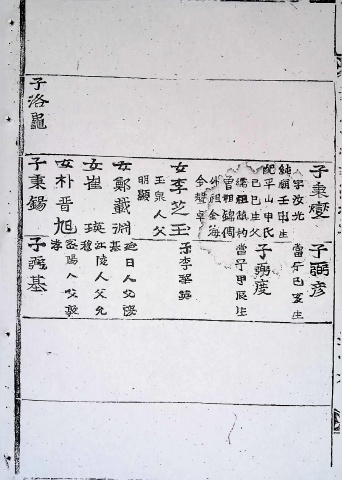 子洛龜
子秉燮
字汶光
純廟壬申生
配平山申氏
己巳生父
曾祖錫
外祖金海
金聲卓
女李芝玉
玉泉人父
明顯
女鄭載淵
延日人父
基
女崔瑛
江陵人父允
穆
女朴晋旭
密陽人父敦
孝
子秉錫
子弼彦
當宁己亥生
子弼度
當宁甲辰生
子李
子弼基